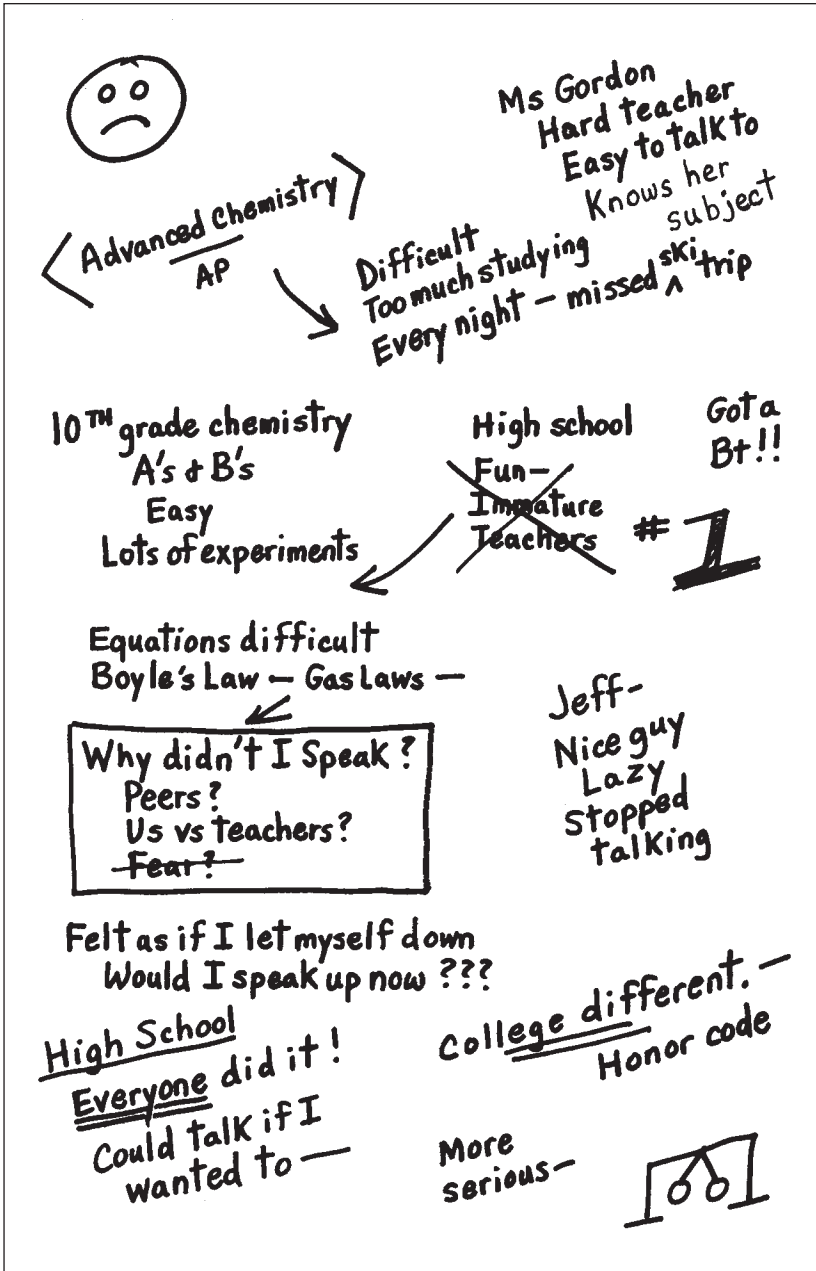 Ms Gordon
Hard teacher
Easy to talk to
Knows her
subject
Advanced Chemistry
AP
Difficult
Too much studying
Every night – missed ski trip
10TH grade chemistry
A's & B's
Easy
Lots of experiments
High school
Fun–
Immature
Teachers
Got a
B+!!
#1
Equations difficult
Boyle's Law – Gas Laws –
Why didn't I Speak?
Peers?
Us vs teachers?
Fear?
Jeff–
Nice guy
Lazy
Stopped
talking
Felt as if I let myself down
Would I speak up now ???
High School
Everyone did it!
Could talk if I
wanted to —
College different. –
Honor code
More
serious–